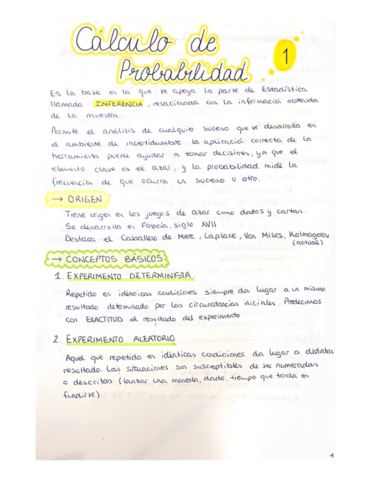 Cálculo de
Probabilidad
1
Es la base en la que se apoya la parte de Estadística
llamada INFERENCIA, relacionada con la información obtenida
de la muestra.
Permite el análisis de cualquier suceso que se desarrolla en
el ambiente de incertidumbre. la aplicación correcta de la
herramienta puede ayudar a tomar decisiones, ya que el
elemento clave es el azar, y la probabilidad mide la
frecuencia de que ocurra un suceso u otro.
→ ORIGEN
Tiene origen en los juegos de azar como dados y cartas.
Se desarrolla en Francia, siglo XVII
Destaca el Caballero de Mere, Laplace, Von Mises, Kolmogolov
(actual)
→ CONCEPTOS BÁSICOS
1. EXPERIMENTO DETERMINISTA
Repetido en idénticas condiciones siempre da lugar a un mismo
resultado determinado por las circunstancias iniciales. Predecimos
con EXACTITUD el resultado del experimento
2. EXPERIMENTO ALEATORIO
Aquel que repetido en idénticas condiciones da lugar a distintos
resultado. Las situaciones son susceptibles de ser numeradas
o descritas (lanzar una moneda, dado, tiempo que tarda en
fundirse).
1